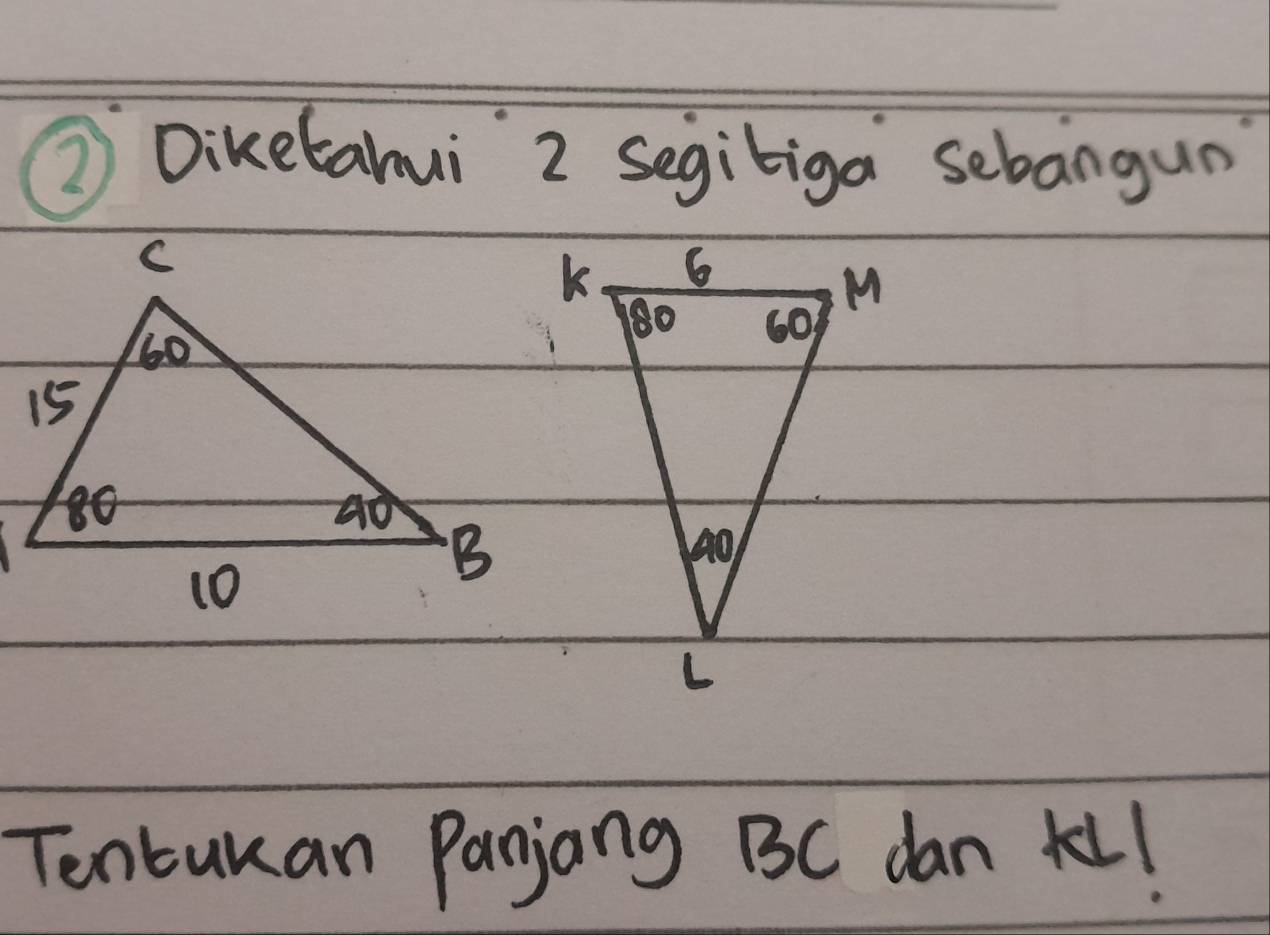 2 Diketahui 2 segitiga sebangun
C
K 6 M
80 60
60
15
80 40
B
40
10
L
Tentukan Panjang BC dan KL!